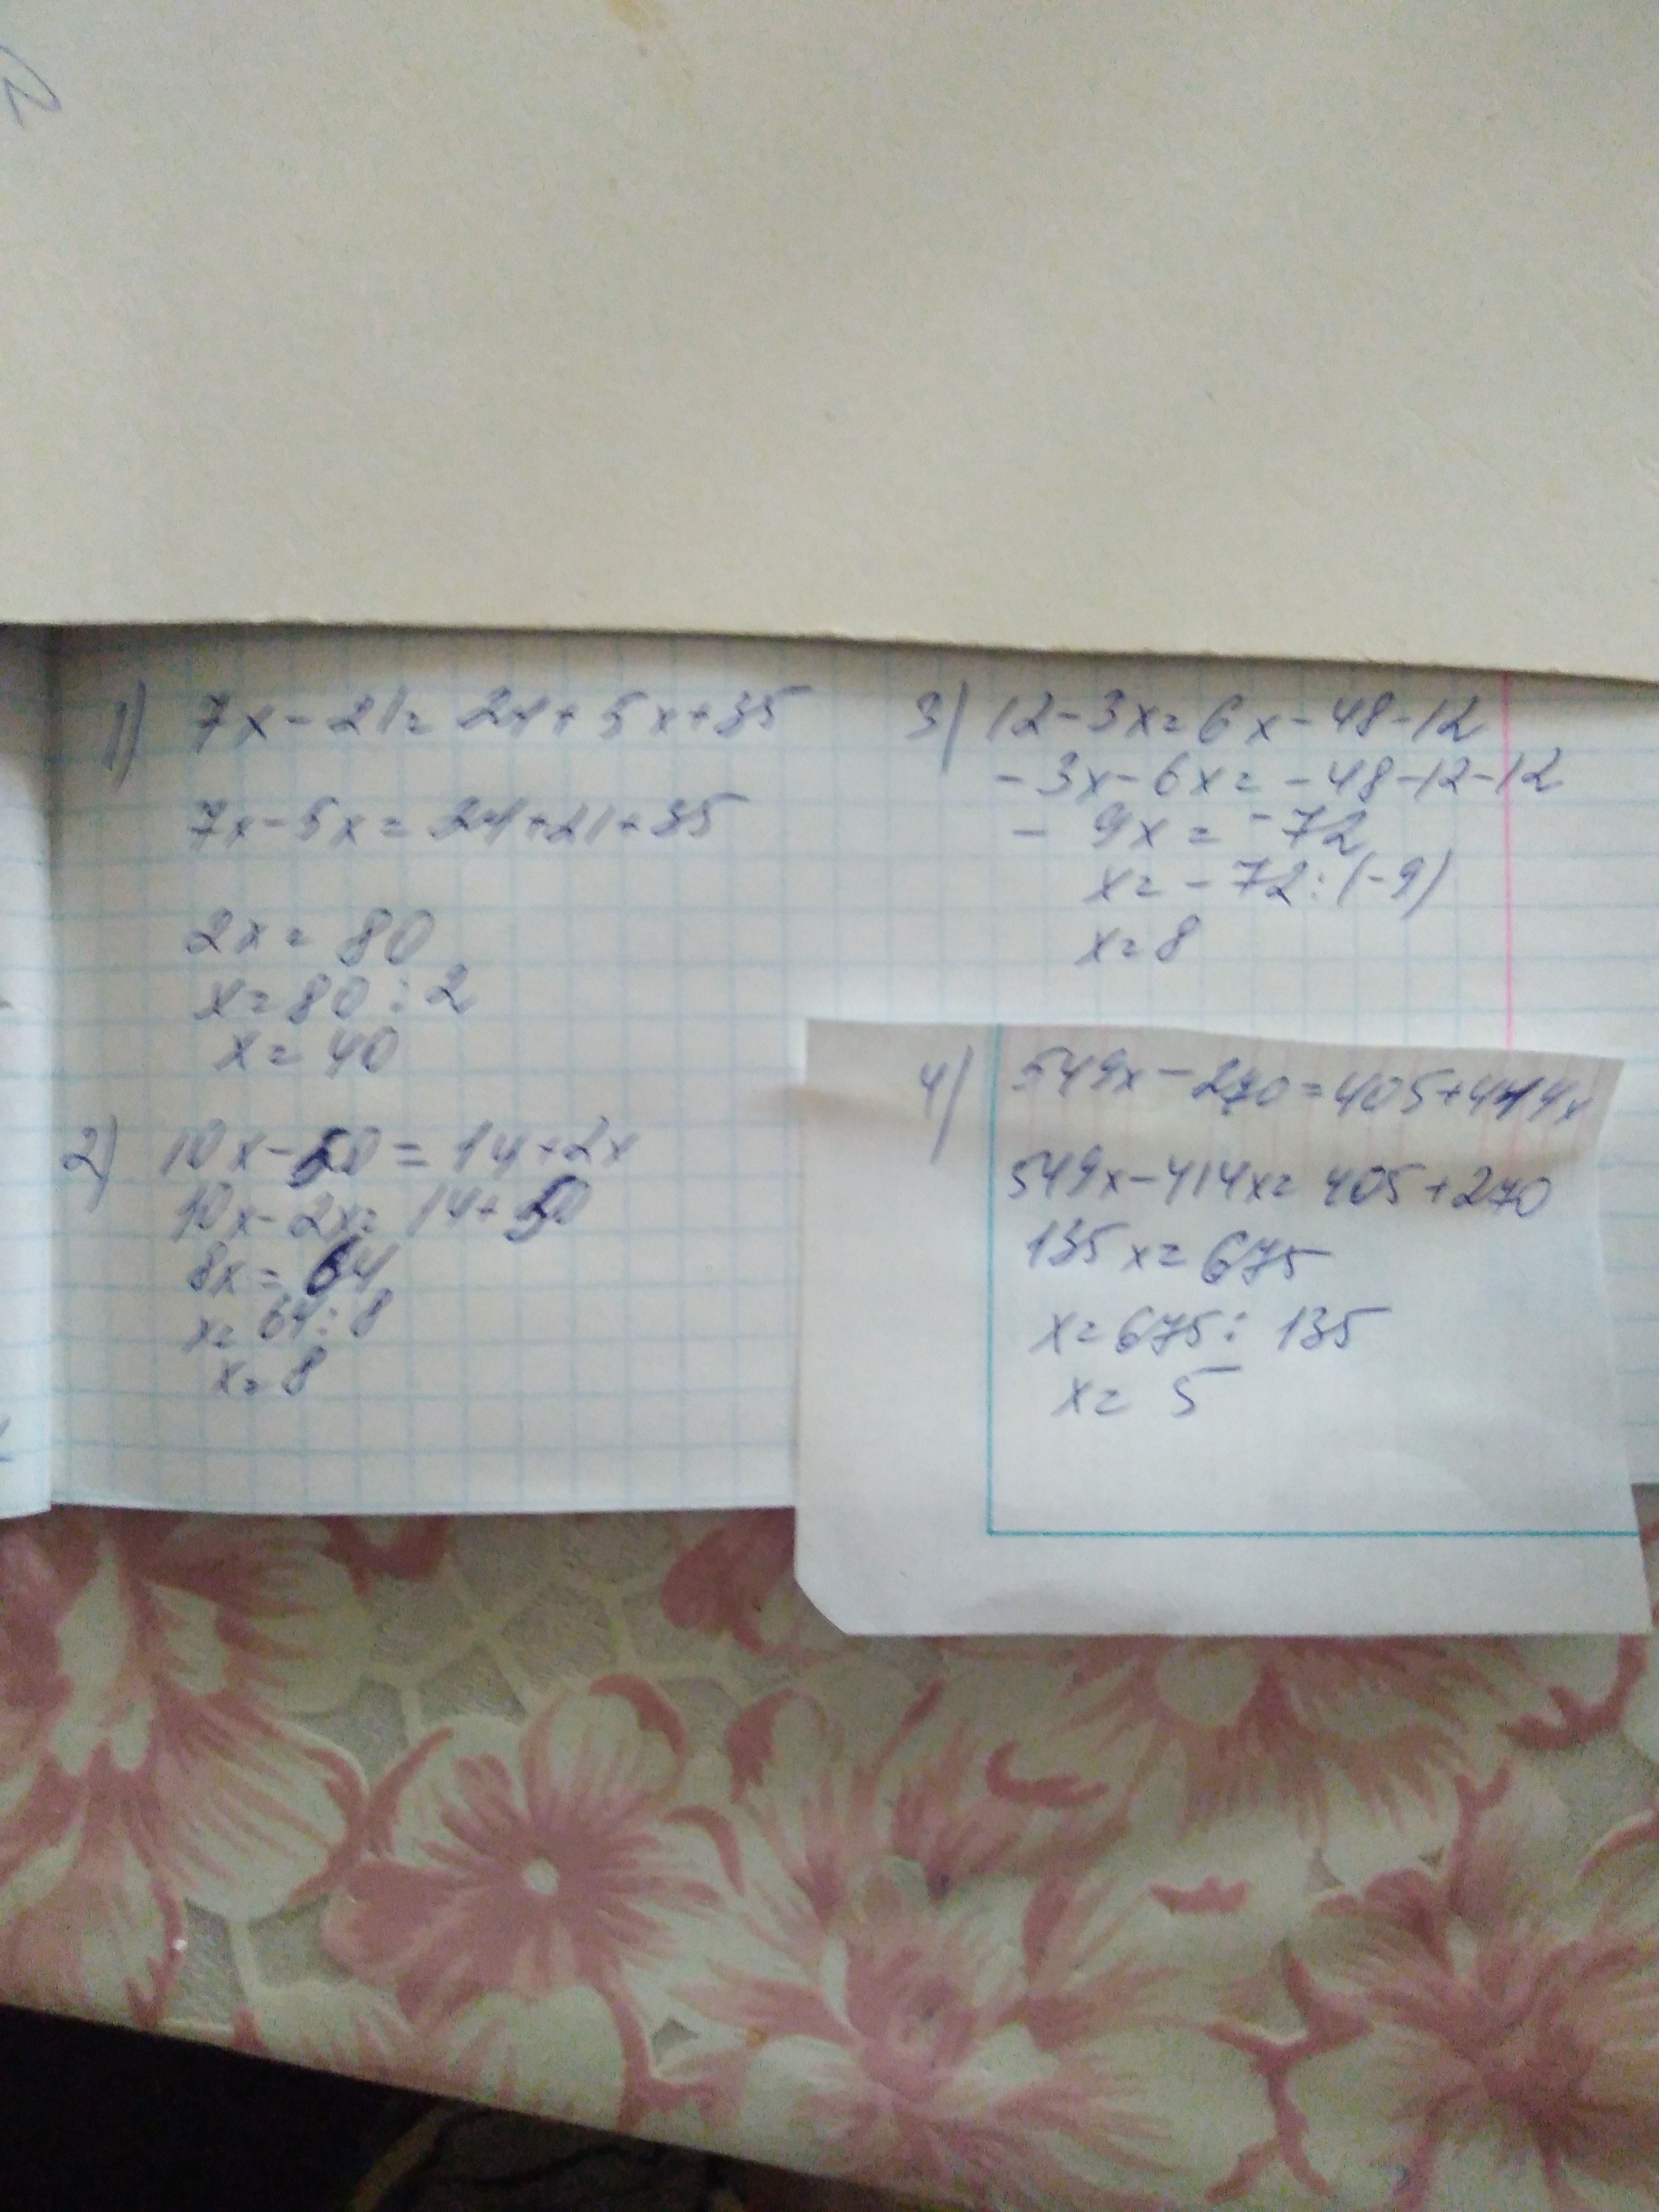 1) 7x-21=24+5x+35
7x-5x=24+21+35
2x=80
x=80:2
x=40
2) 10x-50=14+2x
10x-2x=14+50
8x=64
x=64:8
x=8
3) 12-3x=6x-48-12
-3x-6x=-48-12-12
-9x=-72
x=-72:(-9)
x=8
4) 549x-270=405+414x
549x-414x=405+270
135x=675
x=675:135
x=5